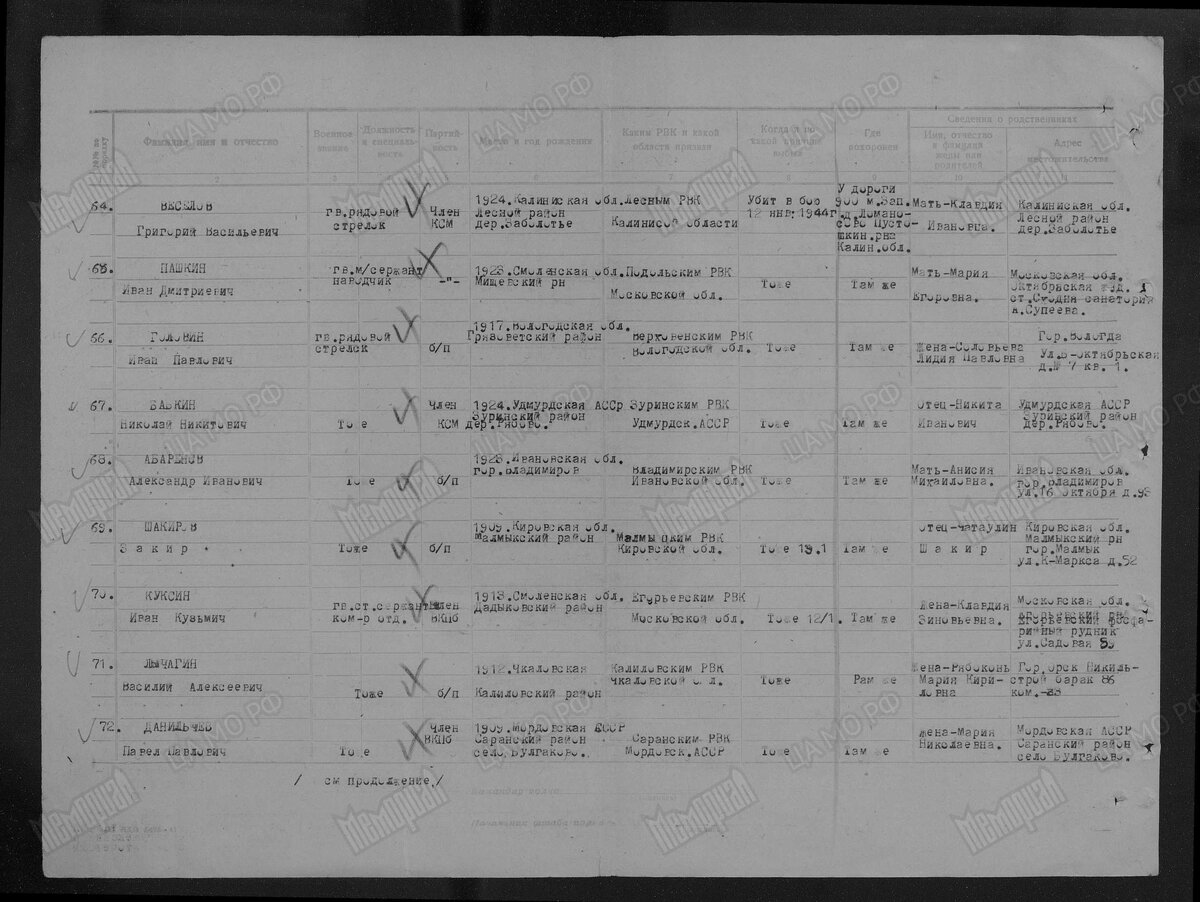 №№ по порядку
Фамилия, имя и отчество
Военное звание
Должность и специальность
Партийность
Место и год рождения
Каким РВК и какой области призван
Когда и по какой причине выбыл
Где похоронен
Сведения о родственниках
Имя, отчество и фамилия жены или родителей
Адрес местожительства
2 7 8 9 10 11
64. ВЕСЕЛОВ Григорий Васильевич
гв.рядовой стрелок
Член КСМ
1924.Калиниская обл. Лесной район дер.Заболотье
Лесным РВК Калинисой области
Убит в бою 12 янв.1944г.
У дороги 900 м.Зап. д.Ломаносово Пустошкин.рна Калин.обл.
Мать-Клавдия Ивановна.
Калиниская обл. Лесной район дер.Заболотье
65. ПАШКИН Иван Дмитриевич
гв.м/сержант наводчик
-"-
1923.Смоленская обл. Мищевский рн
Подольским РВК Московской обл.
Тоже
Там же
Мать-Мария Егоровна.
Московская обл. Октябрьская жд. ст.Сходня санатория
66. ГОЛОВИН Иван Павлович
гв.рядовой стрелок
б/п
1917.Вологодская обл. Грязоветский район
Верховенским РВК Вологодской обл.
Тоже
Там же
Жена-Соловьева Лидия Павловна
Гор.Вологда Ул.В-октябрьская д.№ 7 кв. 1.
67. БАБКИН Николай Никитович
Тоже
Член КСМ
1924.Удмурдская АССр Зуринский район дер.Рябово.
Зуринским РВК Удмурдск.АССР
Тоже
Там же
Отец-Никита Иванович
Удмурдская АССР Зуринский район дер.Рябово.
68. АБАРЕНОВ Александр Иванович
Тоже
б/п
1923.Ивановская обл. гор.Владимиров
Владимирским РВК Ивановской обл.
Тоже
Там же
Мать-Анисия Михайловна.
Ивановская обл. гор.Владимиров ул.16 октября д.93
69. ШАКИРОВ Закир
Тоже
б/п
1909.Кировская обл. Малмыкский район
Малмыцким РВК Кировской обл.
Тоже 13.1
Там же
Отец-Чатаулин Шакир
Кировская обл. Малмыкский рн гор.Малмык ул.К-Маркса д.52
70. КУКСИН Иван Кузьмич
гв.ст.сержант ком-р отд.
Член ВКПб
1913.Смоленская обл. Дадыковский район
Егурьевским РВК Московской обл.
Тоже 12/1.
Там же
Жена-Клавдия Зиновьевна.
Московская обл. Егорьевский рна Егорьевский фосфарийный рудник ул.Садовая
71. ЛЫЧАГИН Василий Алексеевич
Тоже
б/п
1912.Чкаловская Калиловский район
Калиловским РВК Чкаловской обл.
Тоже
Рам же
Жена-Рябоконь Мария Кириловна
Гор.Орск Никельстрой барак 86 ком.-33
72. ДАНИЛЬЧЕВ Павел Павлович
Тоже
Член ВКПб
1909.Мордовская АССР Саранский район село Булгаково.
Саранским РВК Мордовск.АССР
Тоже
Там же
Жена-Мария Николаевна.
Мордовская АССР Саранский район село Булгаково.
/ см продолжение /
Командир полка
Начальник штаба полка
Мемориал
ЦАМО РФ